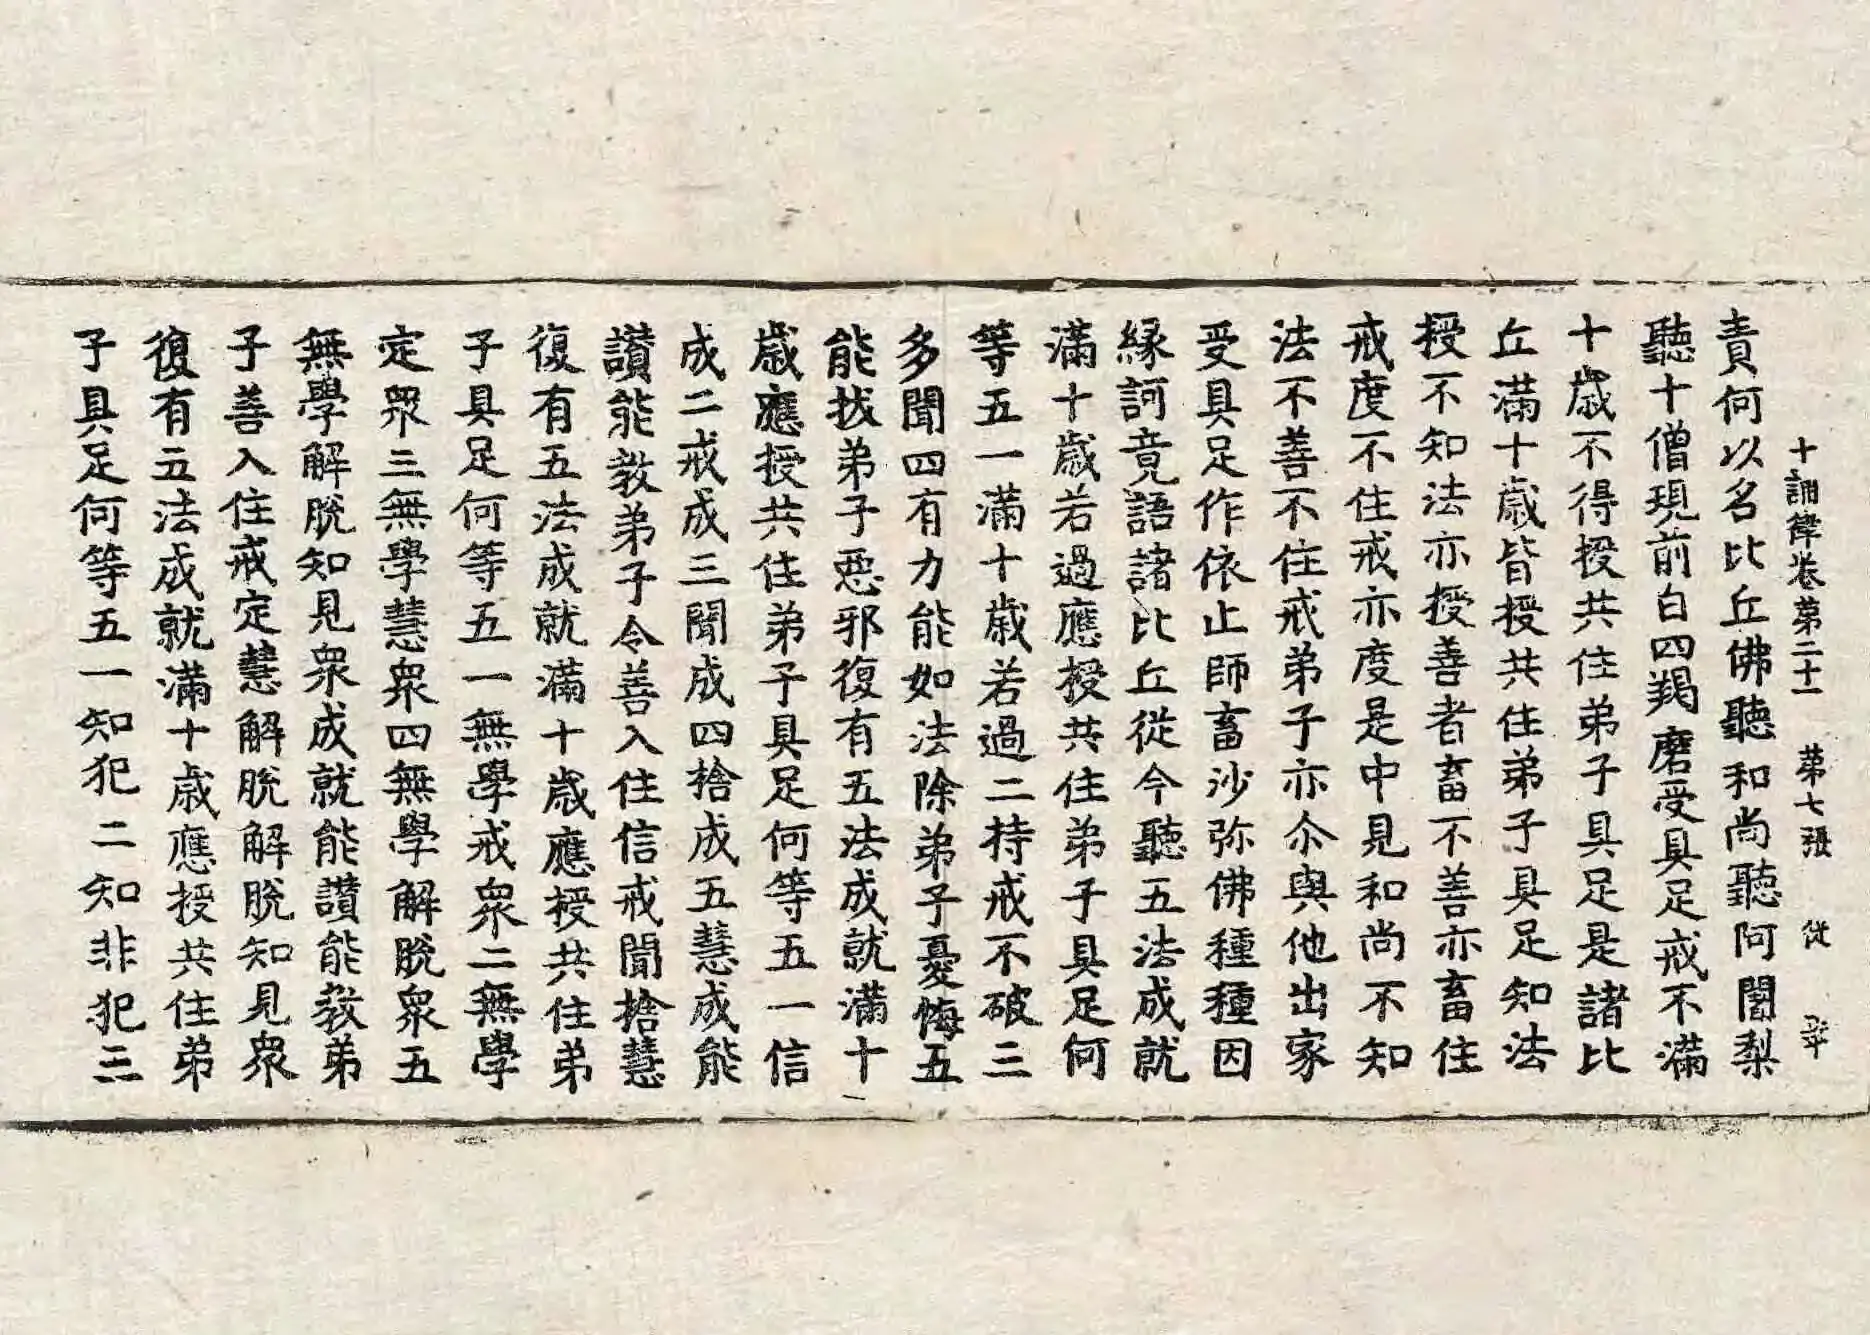 十誦律卷第二十一 第七張 從
責何以名比丘佛聽和尚聽阿闍梨
聽十僧現前白四羯磨受具足戒不滿
十歲不得授共住弟子具足是諸比
丘滿十歲皆授共住弟子具足知法
授不知法亦授善者畜不善亦畜住
戒度不住戒亦度是中見和尚不知
法不善不住戒弟子亦尒與他出家
受具足作依止師畜沙弥佛種種因
緣訶竟語諸比丘從今聽五法成就
滿十歲若過應授共住弟子具足何
等五一滿十歲若過二持戒不破三
多聞四有力能如法除弟子憂悔五
能拔弟子惡邪復有五法成就滿十
歲應授共住弟子具足何等五一信
成二戒成三聞成四捨成五慧成能
讚能教弟子令善入住信戒聞捨慧
復有五法成就滿十歲應授共住弟
子具足何等五一無學戒眾二無學
定眾三無學慧眾四無學解脫眾五
無學解脫知見眾成就能讚能教弟
子善入住戒定慧解脫解脫知見眾
復有五法成就滿十歲應授共住弟
子具足何等五一知犯二知非犯三